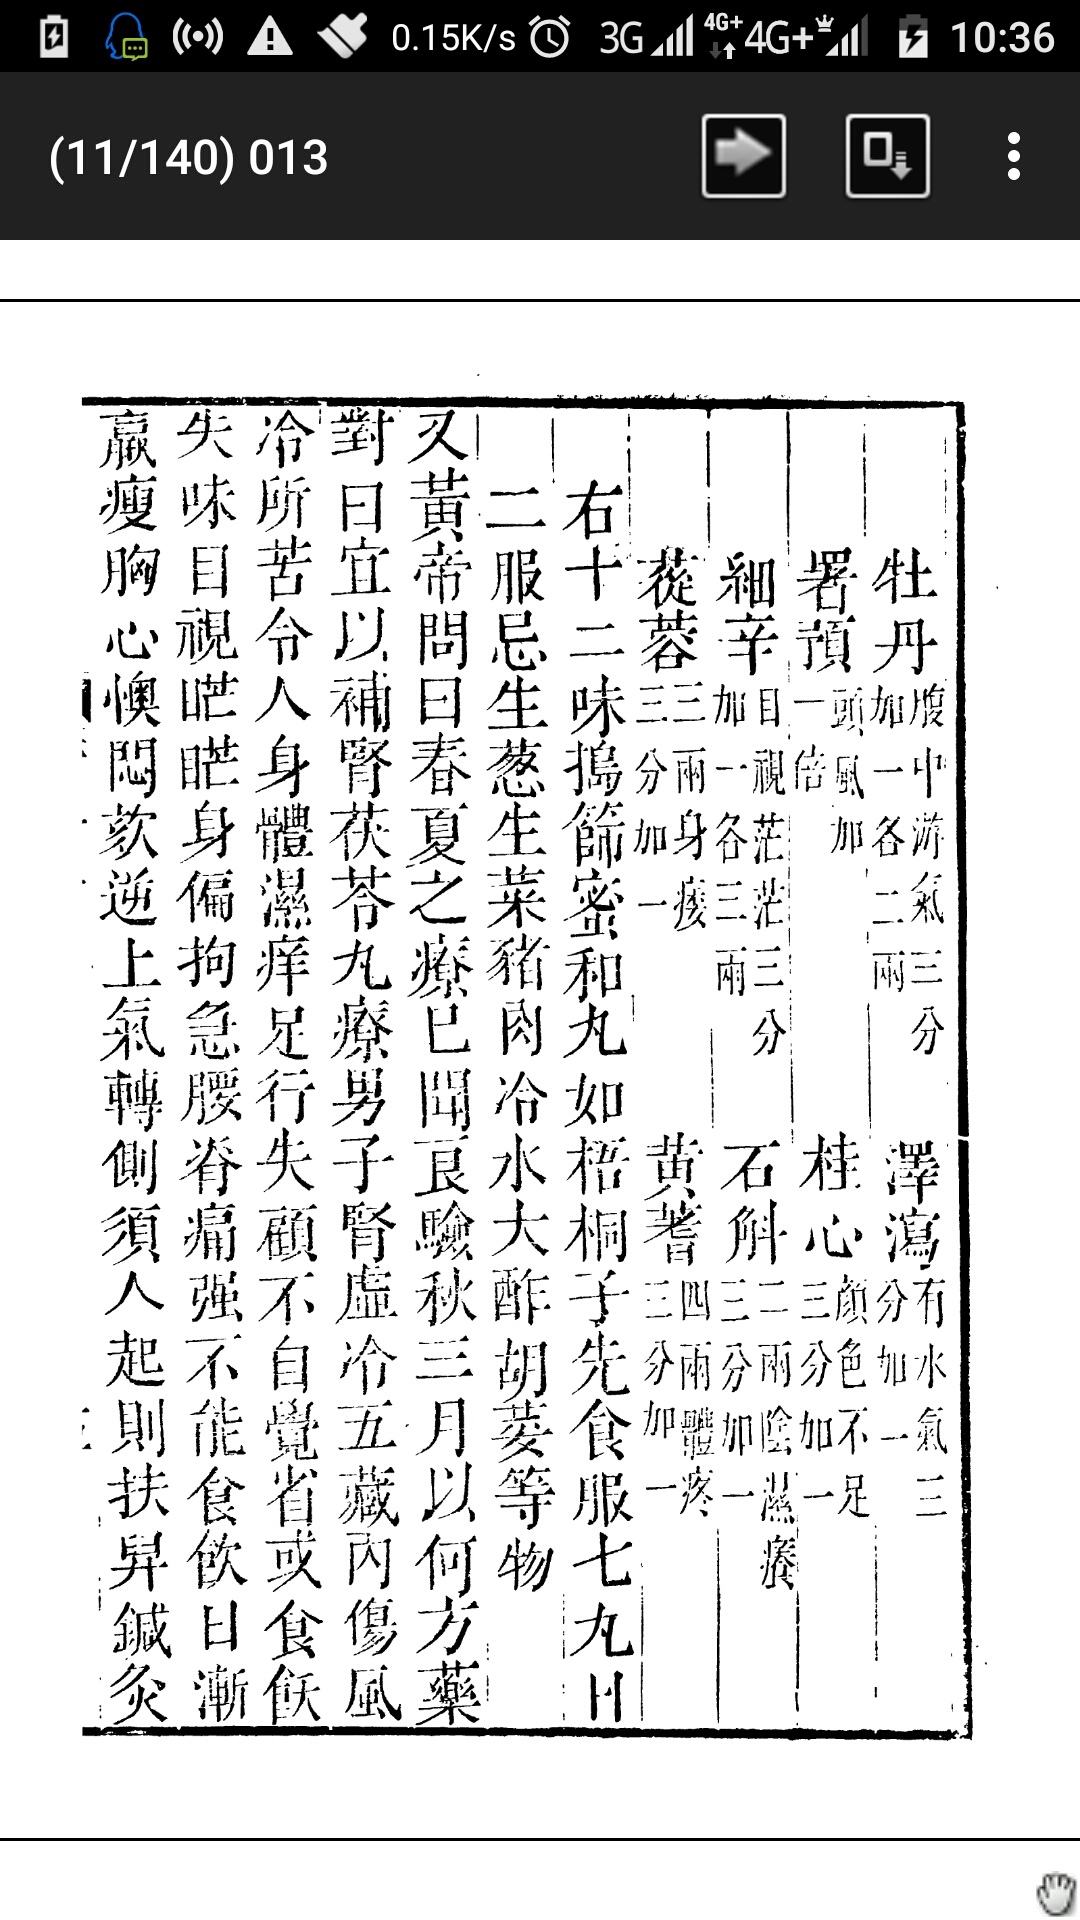 0.15K/s 3G 4G+ 4G+ 10:36
(11/140) 013
牡丹腹中游氣三分加一各二兩 澤瀉有水氣三分加一
署蕷頭風加一倍 桂心顔色不足三分加一
細辛目視茫茫三分加一各三兩 石斛二兩陰濕癢三分加一
蓯蓉三兩身痿三分加一 黄蓍四兩體疼三分加一
右十二味搗篩蜜和丸如梧桐子先食服七丸日
二服忌生葱生菜豬肉冷水大酢胡荽等物
又黃帝問曰春夏之療已聞良驗秋三月以何方藥
對曰宜以補腎茯苓丸療男子腎虛冷五藏內傷風
冷所苦令人身體濕痒足行失顧不自覺省或食飫
失味目視𥇀𥇀身偏拘急腰脊痛强不能食飲日漸
羸瘦胸心懊悶欬逆上氣轉側須人起則扶舁鍼灸